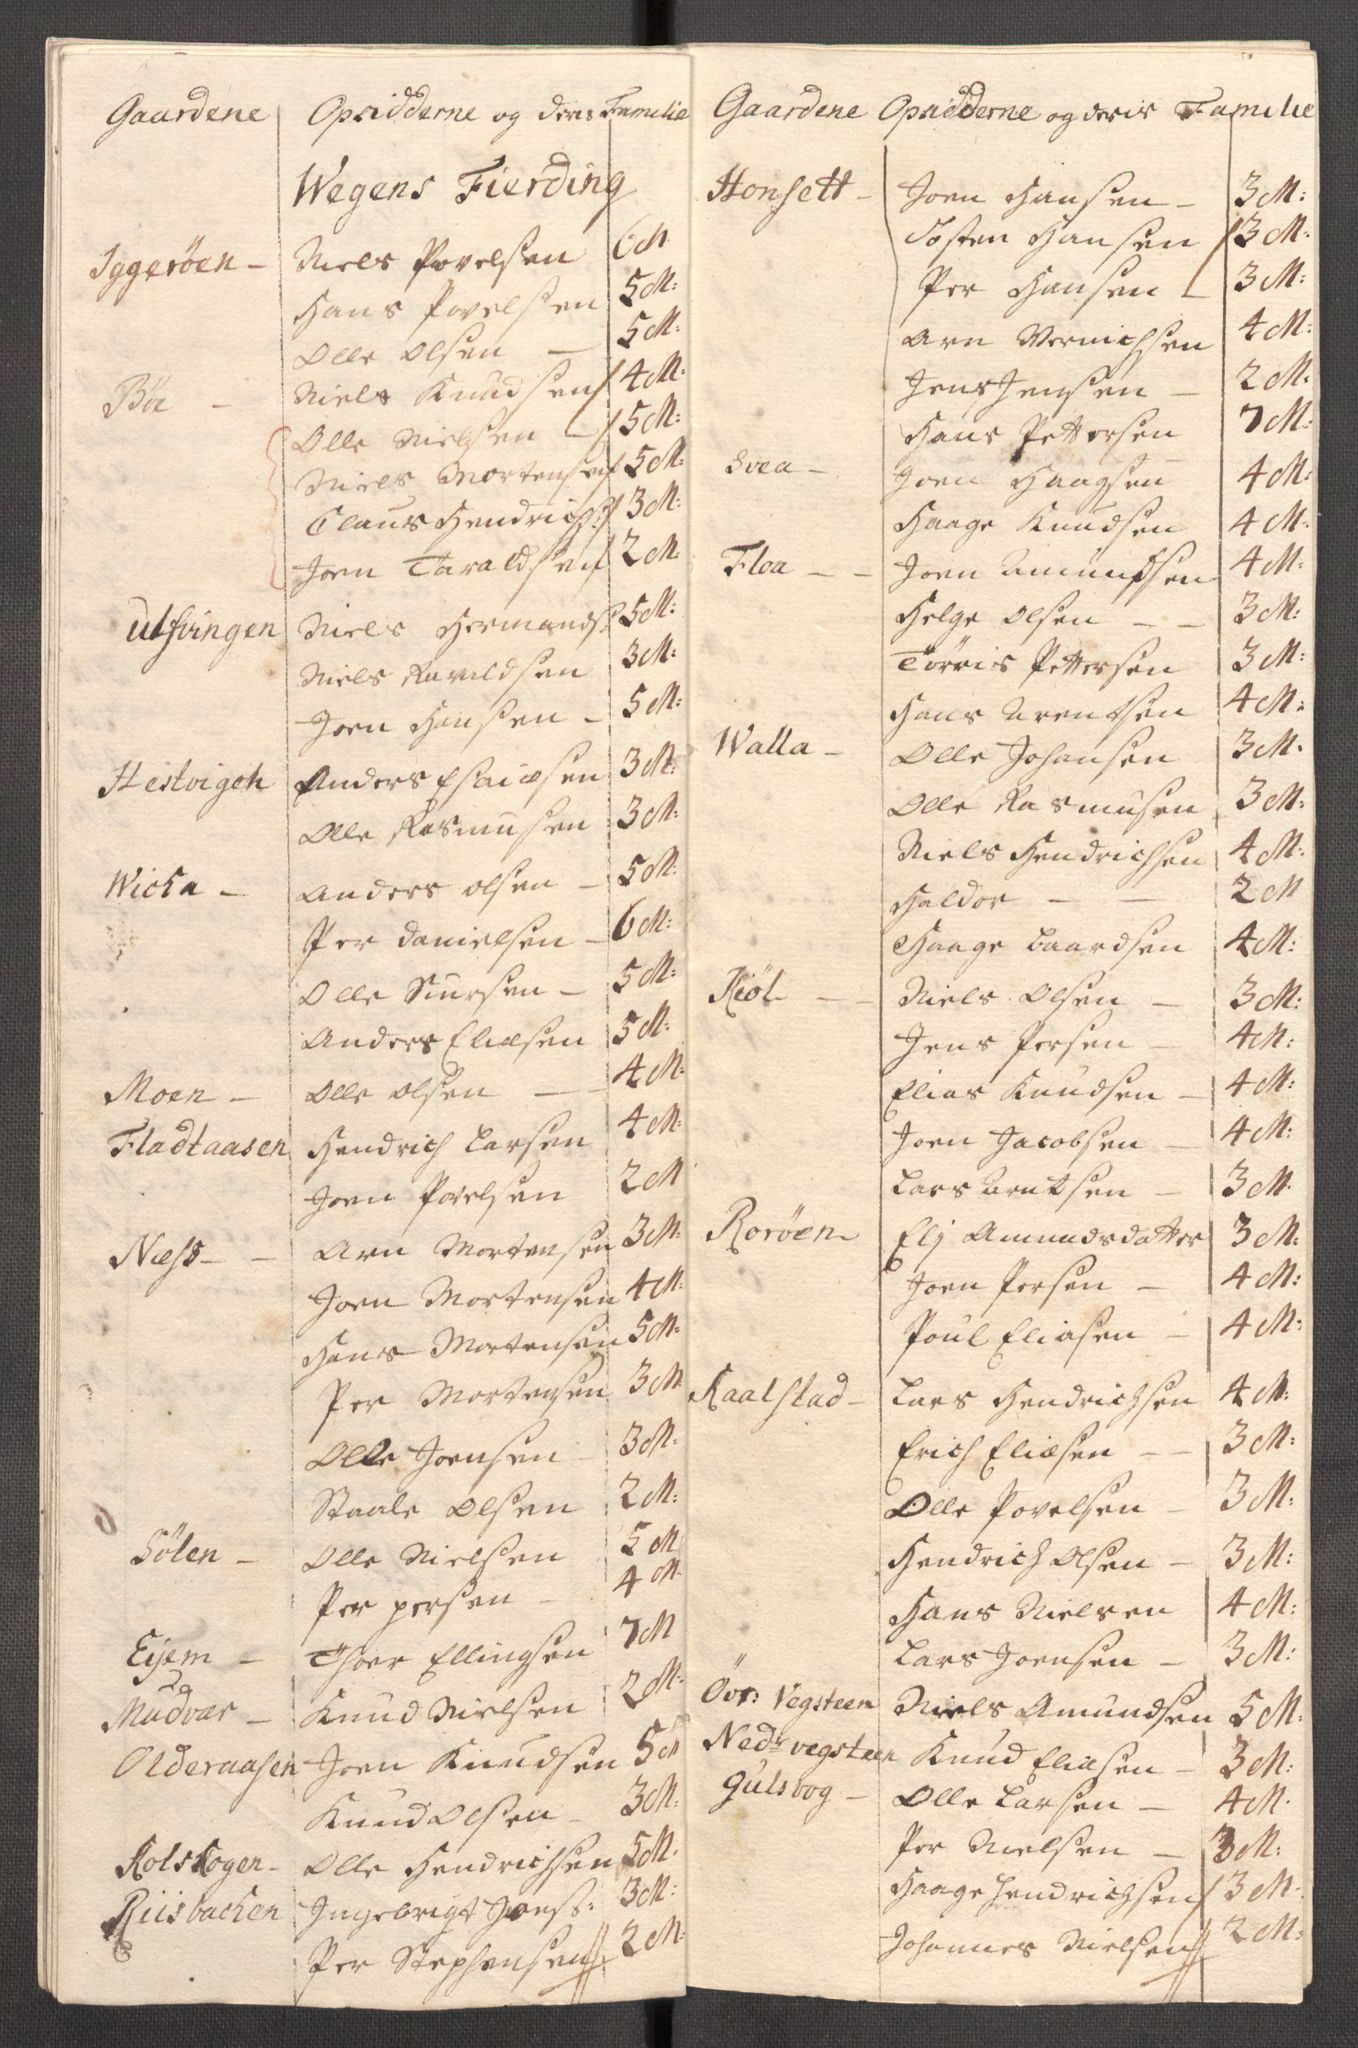 Gaardene Opsidderne og deris Familie
Wegens Fierding
Iggeröen - Niels Povelsen 6 M
Hans Povelsen 5 M:
Olle Olsen - 5 M:
Böe - Niels Knudsen 4 M:
Olle Nielsen - 5 M:
Niels Mortensen 5 M:
Claus Hendrichs: 3 M:
Joen Taraldsen 2 M
Ulfvingen Niels Hermands: 5 M:
Niels Raraldsen 3 M:
Joen Hansen - 5 M:
Hestvigeh Anders Esaiæsen 3 M:
Olle Rasmusen 3 M:
Wicka - Anders Olsen - 5 M:
Per Danielsen - 6 M:
Olle Siursen - 5 M:
Anders Eliæsen 5 M:
Moen - Olle Olsen - 4 M:
Fladtaasen Hendrich Larsen 4 M:
Joen Povelsen 2 M
Næss - - Arn Mortensen 3 M:
Joen Mortensen 4 M:
Hans Mortensen 5 M:
Per Mortensen 3 M
Olle Joensen - 3 M:
Staale Olsen 2 M:
Sölen - Olle Nielsen 5 M
Per persen - 4 M
Eijem - Thoer Ellingsen 7 M
Mudvær - Knud Nielsen 2 M:
Olderaasen Joen Knudsen 5 M
Knud Olsen - 3 M:
Kolskogen - Olle Hendrichsen 5 M:
Riisbacken Ingebrigt Joens: 3 M:
Per Stephensen 2 M:
Gaardene Opsidderne og deris Familie
Honsett - Joen Hansen - 3 M:
Tosten Hansen 3 M:
Per Hansen 3 M:
Arn Wernichsen 4 M:
Jens Jensen - 2 M:
Hans Pettersen 7 M:
Svea - Joen Haagsen 4 M:
Haage Knudsen 4 M:
Floa - - Joen Amundsen 4 M:
Helge Olsen - - 3 M:
Törris Pettersen 3 M:
Hans Arentsen 4 M:
Walla - Olle Johansen 3 M:
Olle Rasmusen 3 M:
Niels Hendrichsen 4 M:
Haldor - - 2 M
Haage Baardsen 4 M:
Kiöl - - Niels Olsen - 3 M:
Jens Persen - 4 M:
Elias Knudsen - 4 M:
Joen Jacobsen - 4 M:
Lars Arntsen - 3 M:
Roröen - Elj Amundsdatter 3 M:
Joen Persen - 4 M:
Poul Eliasen - 4 M:
Kaalstad - Lars Hendrichsen 4 M:
Erich Eliæsen - - 3 M:
Olle Povelsen - 3 M:
Hendrich Olsen - 3 M:
Hans Nielsen 4 M:
Lars Joensen - 3 M:
Övr: Vegsteen Niels Amundsen 5 M:
Nedr vegsteen Knud Eliæsen - 3 M:
Gulsvog - Olle Larsen - 4 M:
Per Nielsen - 3 M:
Haage Hendrichsen 3 M:
Johannes Nielsen 2 M: